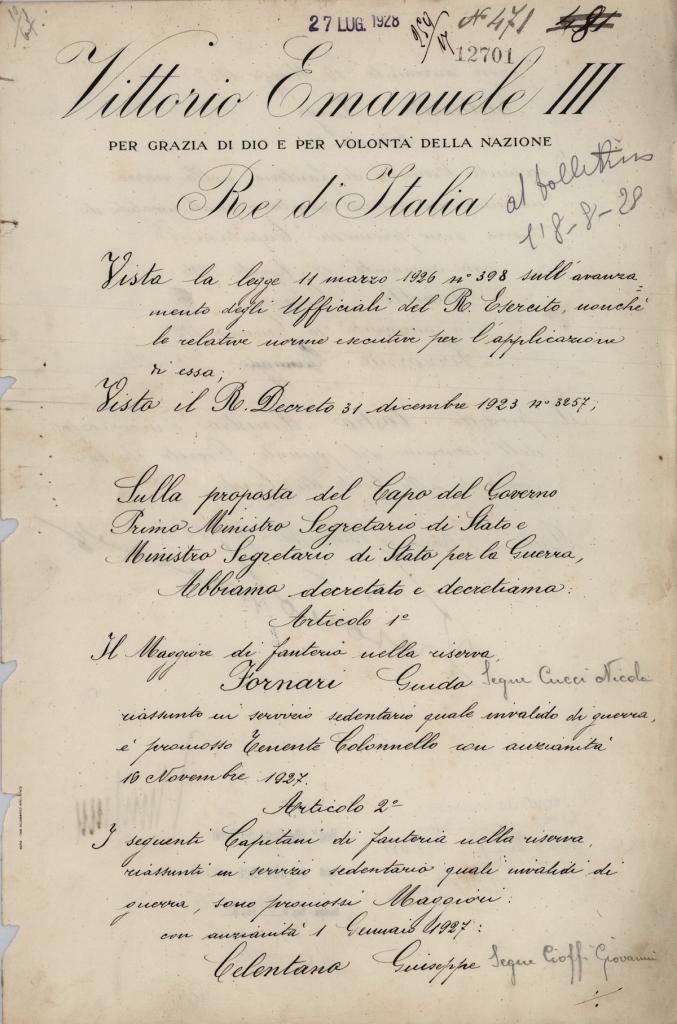 27 LUG. 1928
N 471
481
12701
Vittorio Emanuele III
PER GRAZIA DI DIO E PER VOLONTA' DELLA NAZIONE
Re d'Italia
al bollettino
l'8-8-28
Vista la legge 11 marzo 1926 n° 398 sull'avanza=
mento degli Ufficiali del R. Esercito, nonchè
le relative norme esecutive per l'applicazione
di essa;
Visto il R. Decreto 31 dicembre 1923 n° 3257;
Sulla proposta del Capo del Governo
Primo Ministro Segretario di Stato e
Ministro Segretario di Stato per la Guerra,
Abbiamo decretato e decretiamo:
Articolo 1°
Il Maggiore di fanteria nella riserva,
Fornari Guido Segue Cucci Nicola
riassunto in servizio sedentario quale invalido di guerra,
è promosso Tenente Colonnello con anzianità
16 Novembre 1927.
Articolo 2°
I seguenti Capitani di fanteria nella riserva,
riassunti in servizio sedentario quali invalidi di
guerra, sono promossi Maggiori:
con anzianità 1 Gennaio 1927:
Celentano Giuseppe Segue Cioffi Giovanni